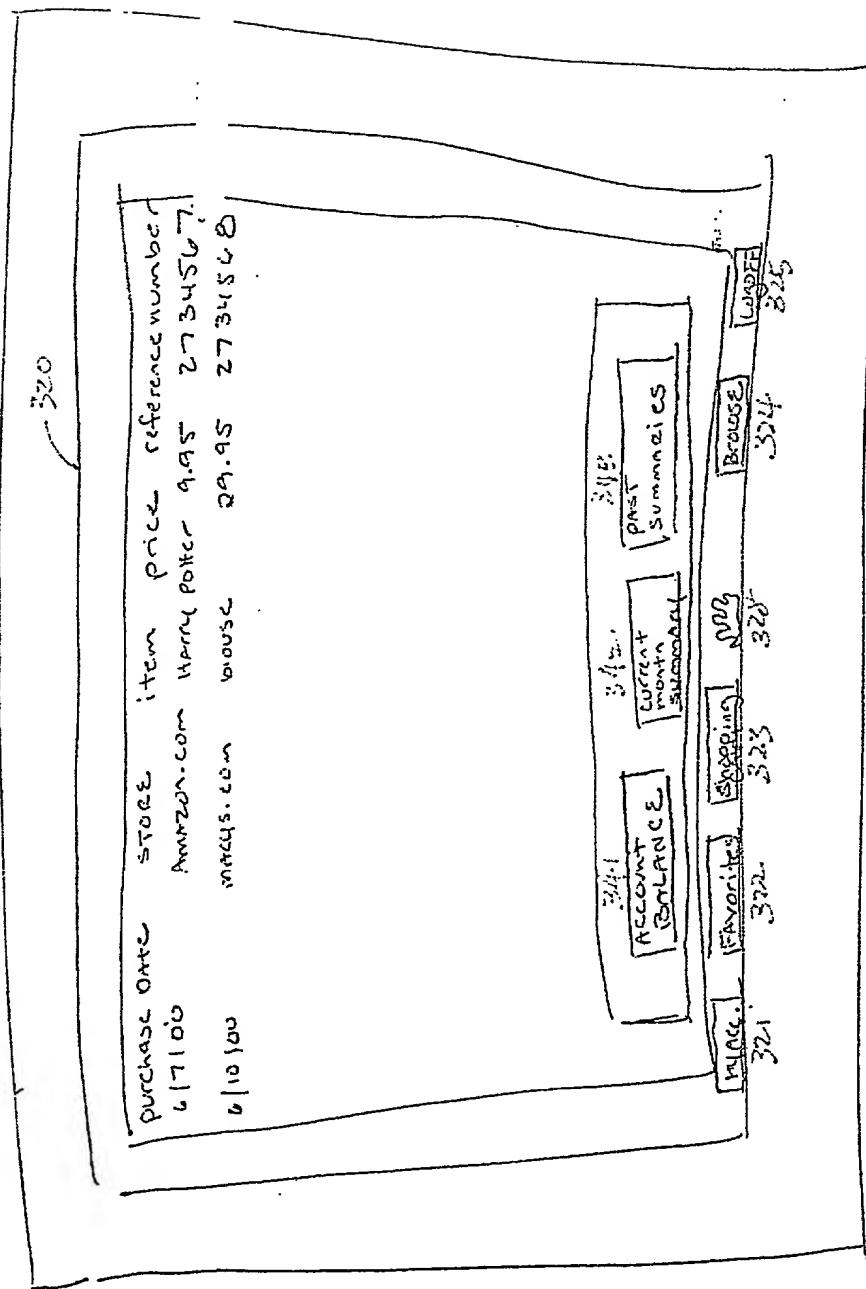 320
purchase DATE STORE item price reference number
6/7/00 AMAZON.COM HARRY Potter 9.95 2734567
6/10/00 macys.com blouse 29.95 2734568
341 342 343
ACCOUNT BALANCE
current month summary
PAST summaries
MY ACC. Favorites Shopping Browse LOGOFF
321 322 323 328 324 325